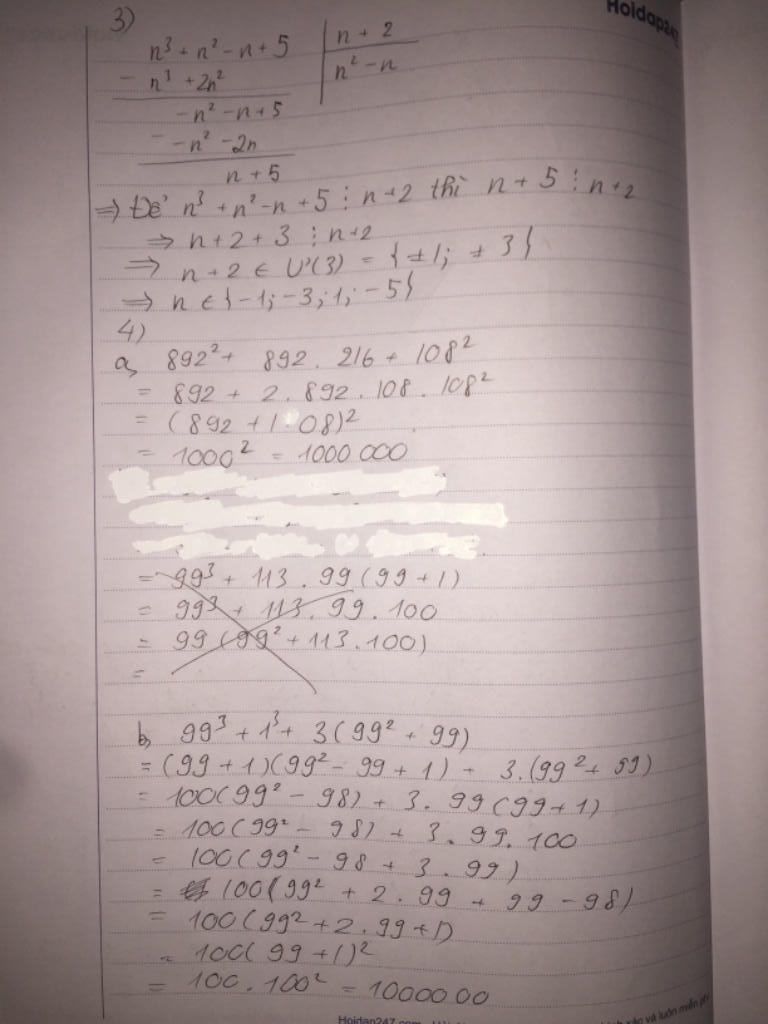 Hoidap247
3)
n³ + n² - n + 5 | n + 2
- n³ + 2n² | n² - n
- n² - n + 5
- - n² - 2n
n + 5
⇒ Để n³ + n² - n + 5 ⋮ n + 2 thì n + 5 ⋮ n + 2
⇒ n + 2 + 3 ⋮ n + 2
⇒ n + 2 ∈ Ư(3) = {±1; ±3}
⇒ n ∈ {-1; -3; 1; -5}
4)
a, 892² + 892 . 216 + 108²
= 892 + 2 . 892 . 108 . 108²
= (892 + 108)²
= 1000² = 1000 000
= 99³ + 113 . 99 (99 + 1)
= 99³ + 113 . 99 . 100
= 99 (99² + 113 . 100)
=
b, 99³ + 1³ + 3(99² + 99)
= (99 + 1)(99² - 99 + 1) + 3.(99² + 99)
= 100(99² - 98) + 3. 99 (99 + 1)
= 100(99² - 98) + 3. 99. 100
= 100(99² - 98 + 3 . 99)
= 100(99² + 2 . 99 + 99 - 98)
= 100(99² + 2. 99 + 1)
= 100(99 + 1)²
= 100. 100² = 1000000
Hoidap247.com
và luôn miễn phí